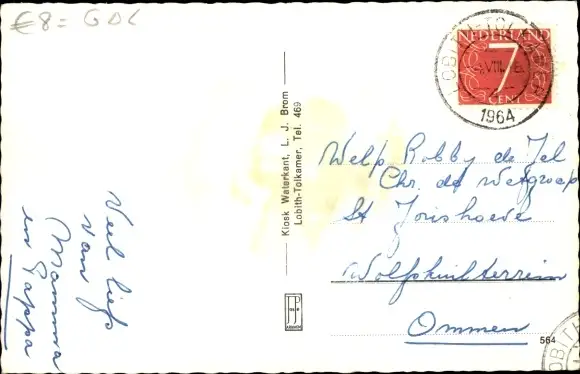 €8= GDL
NEDERLAND
7
CENT
LOBITH-TOLKAMER
VIII
1964
Kiosk Waterkant, L. J. Brom
Lobith-Tolkamer, Tel. 469
Welp Robby de Jel
Chr. de Wetgroep
St Jorishoeve
Wolfskuilterrein
Ommen
Veel liefs
van
Mamma
en Pappa
JP
564
LOBITH